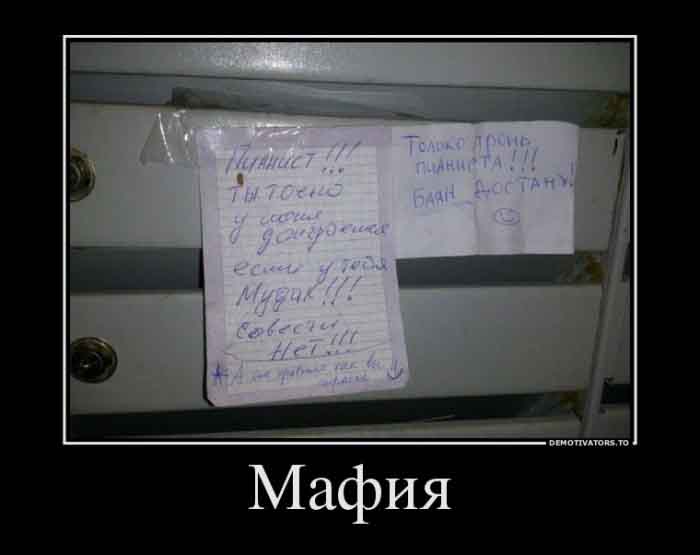 Пианист!!!
ты точно
у меня
доиграешся
если у тебя
Мудак!!!
совести
НЕТ!!!
А мне нравится как вы
играете
Только тронь
пианиста!!!
Баян ДОСТАНУ!
DEMOTIVATORS.TO
Мафия